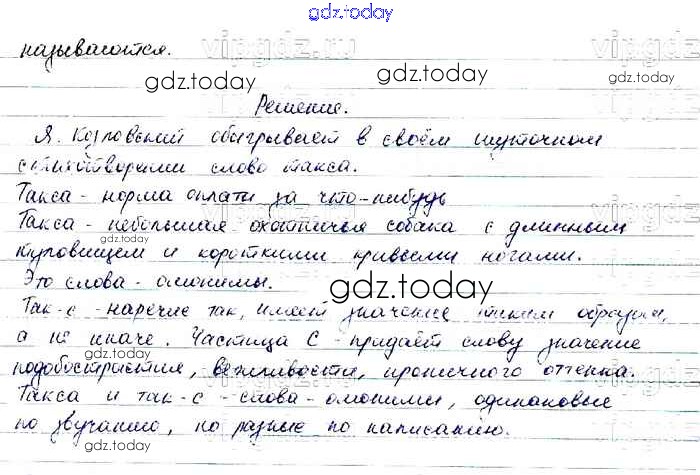 gdz.today
называются.
vipgdz.ru
gdz.today
gdz.today
Решение.
Я. Козловский обыгрывает в своём шуточном
стихотворении слово такса.
Такса - норма оплаты за что-нибудь
Такса - небольшая охотничья собака с длинным
туловищем и короткими кривыми ногами.
gdz.today
Это слова - омонимы.
gdz.today
Так-с - наречие так, имеет значение таким образом,
а не иначе. Частица С - придаёт слову значение
gdz.today
подобострастия, вежливости, ироничного оттенка.
Такса и так-с - слова - омонимы, одинаковые
gdz.today
по звучанию, но разные по написанию.
gdz.today